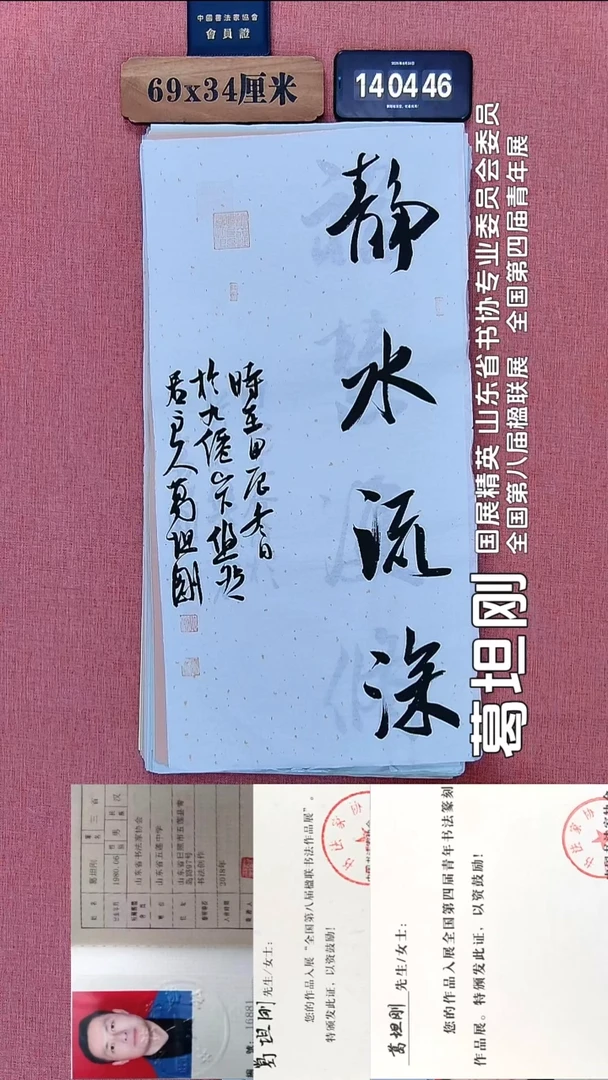 中國書法家協會
會員證
69x34厘米
14 04 46
静水流深
時在甲辰冬日
於九仙山下盤龍
居主人葛坦刚
葛坦刚
国展精英 山东省书协专业委员会委员
全国第八届楹联展 全国第四届青年展
姓名 葛坦刚
1980.06 男 汉
山东省书法家协会
山东省五莲中学
书法创作
2018年
16881
葛坦刚 先生/女士：
您的作品入展“全国第八届楹联书法作品展”。
特颁发此证，以资鼓励！
葛坦刚 先生/女士：
您的作品入展全国第四届青年书法篆刻
作品展。特颁发此证，以资鼓励！